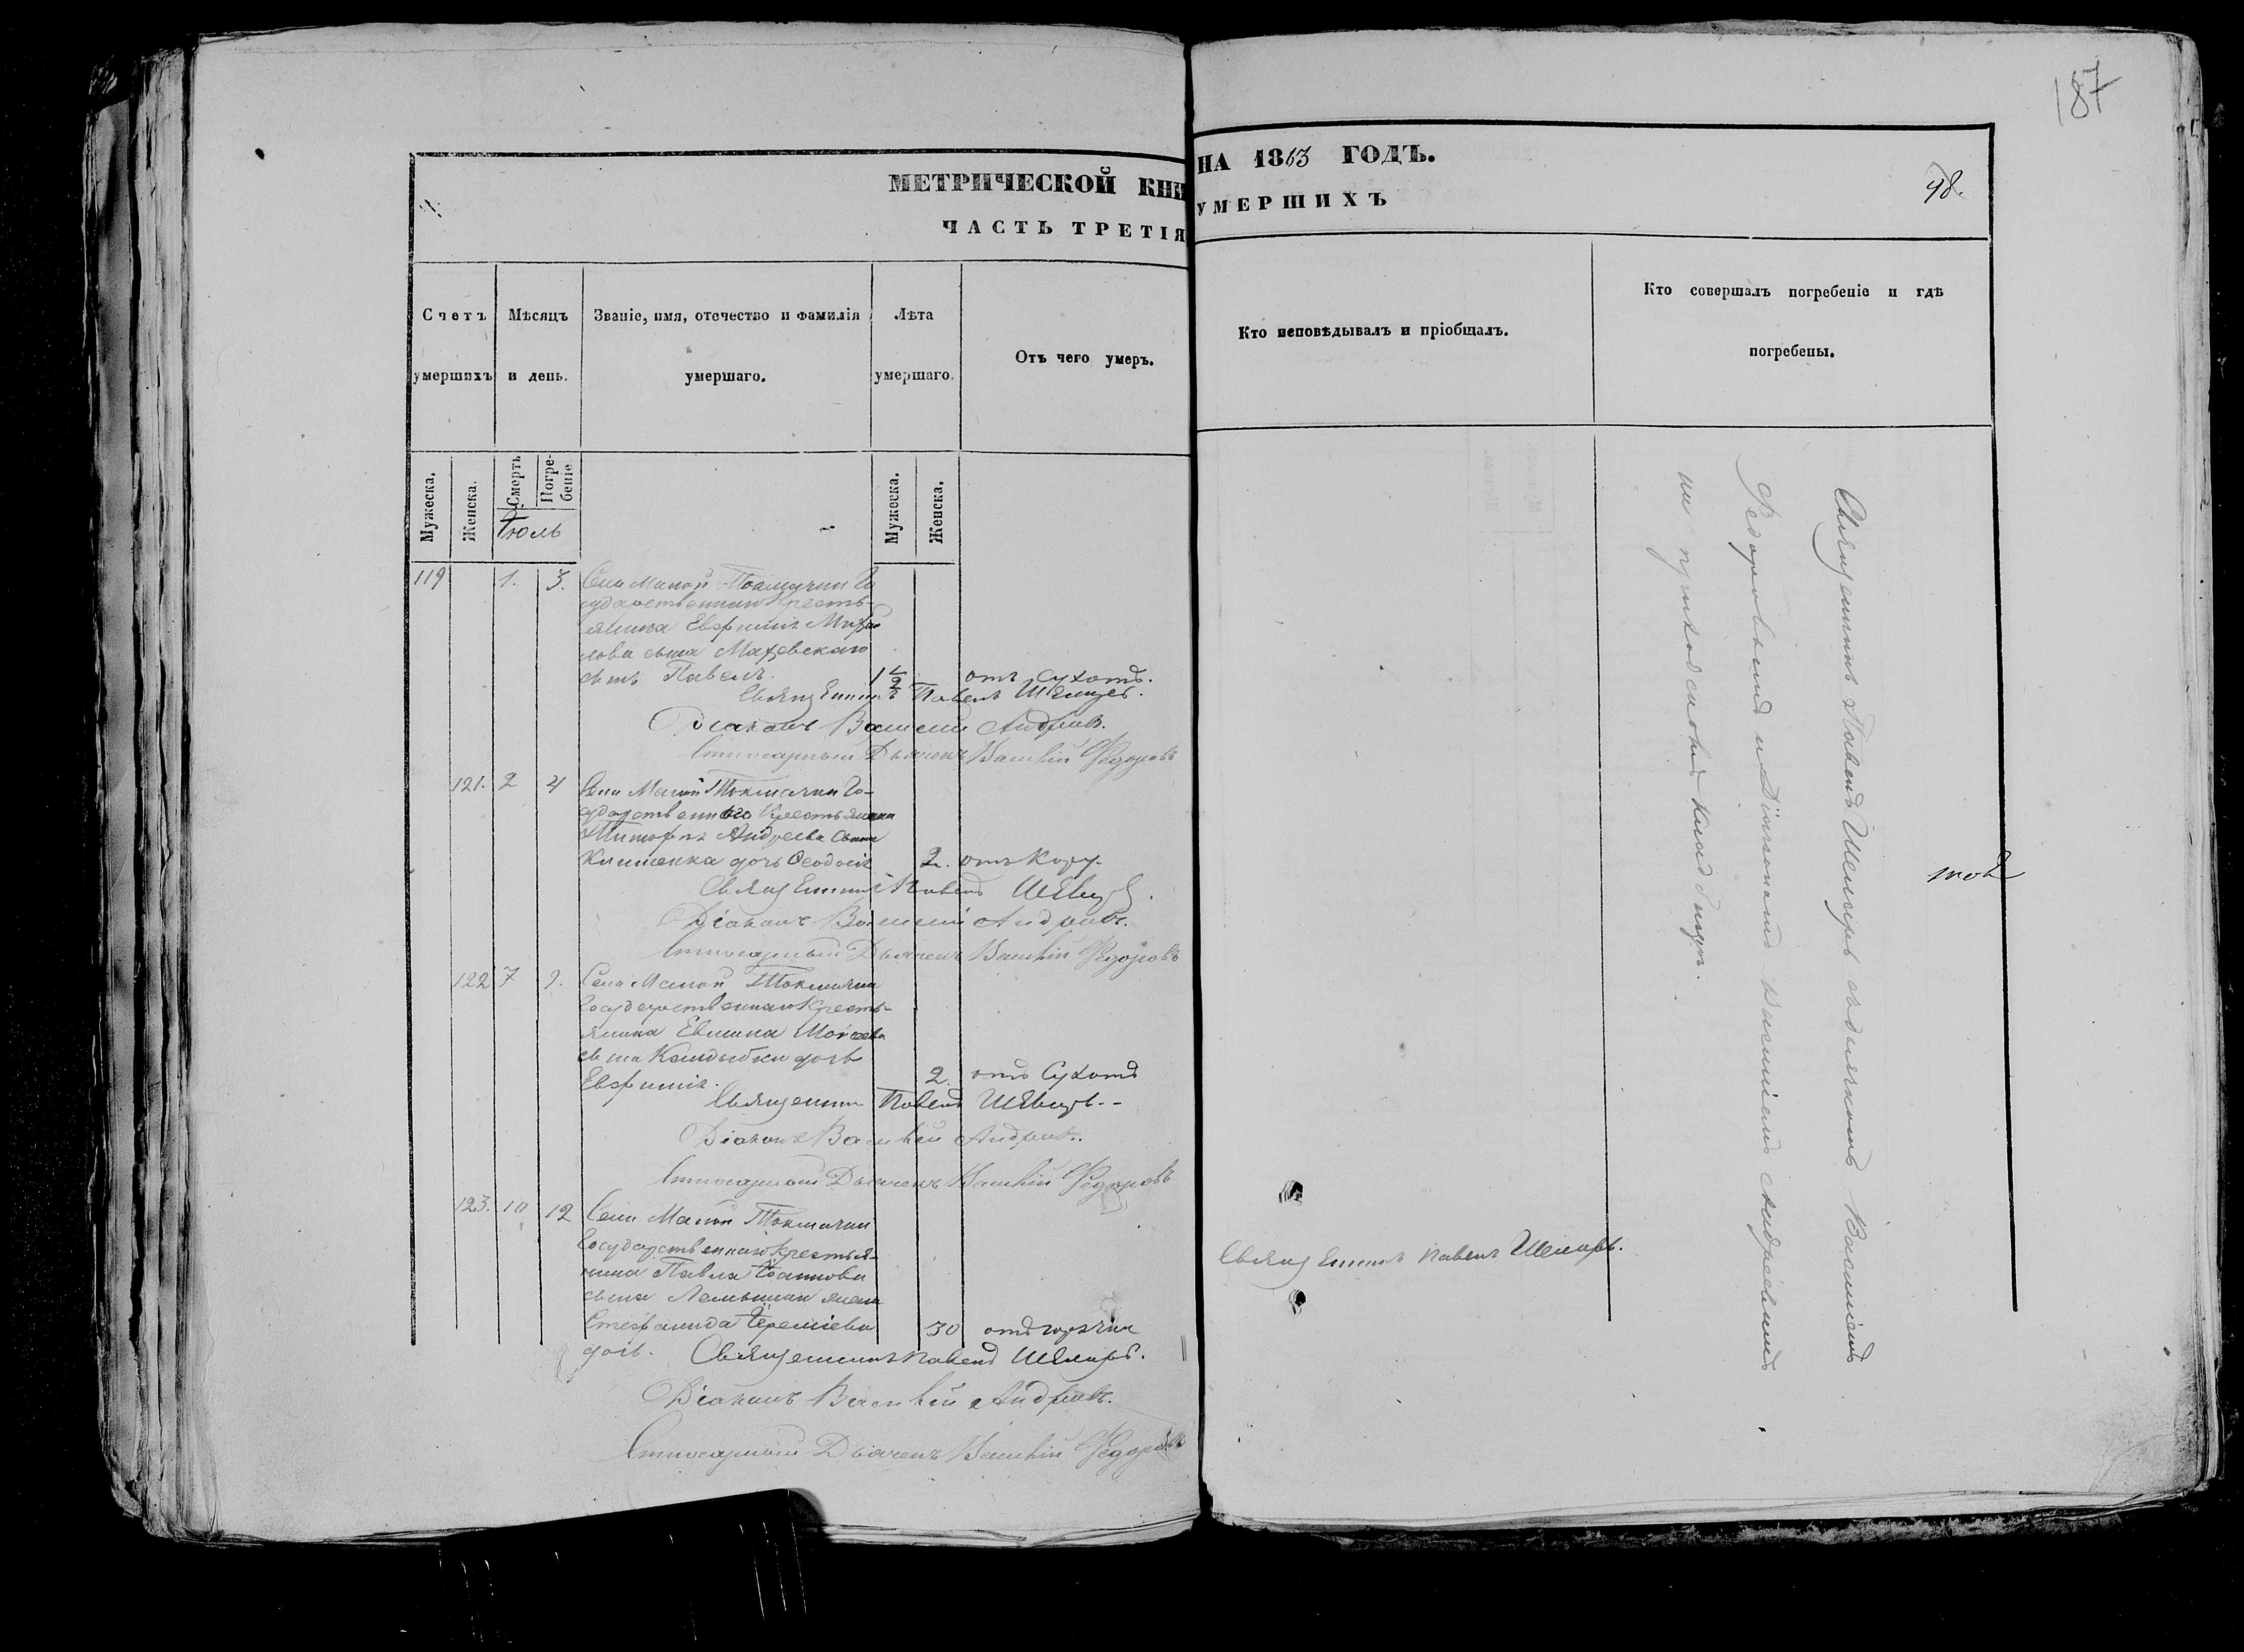 187
МЕТРИЧЕСКОЙ КНИ
ЧАСТЬ ТРЕТІЯ
НА 1863 ГОДЪ.
УМЕРШИХЪ
98.
Счетъ умершихъ
Мѣсяцъ и день.
Званіе, имя, отечество и фамилія умершаго.
Лѣта умершаго.
Отъ чего умеръ.
Кто исповѣдывалъ и пріобщалъ.
Кто совершалъ погребеніе и гдѣ погребены.
Мужеска.
Женска.
Смерть
Погребеніе
Мужеска.
Женска.
Іюль
119 1. 3. Села Малой Токмачки Го
сударственнаго Кресть-
янина Евфимія
сына
сынъ Павелъ. 1½ отъ сухотъ.
Священникъ Павелъ
Діаконъ Василій Андреевъ.
Дьячекъ Василій Федоровъ
121. 2 4 Села Малой Токмачки Го-
сударственнаго Крестьянина
Андреева сына
Клименка дочь Феодосія 2. отъ кору
Священникъ Павелъ
Діаконъ Василій Андреевъ.
Дьячекъ Василій Федоровъ
122 7 9. Села Малой Токмачки
Государственнаго Кресть-
янина Моисеева
сына дочь
Евфимія. 2. отъ сухотъ
Священникъ Павелъ
Діаконъ Василій Андреевъ.
Дьячекъ Василій Федоровъ
123. 10 12 Села Малой Токмачки
Государственнаго Крестья-
нина Павла Іоаннова
сына жена
Стефанида Іереміева
дочь. 30 отъ горячки
Священникъ Павелъ
Діаконъ Василій Андреевъ.
Дьячекъ Василій Федоровъ
Священникъ Павелъ
Священникъ Павелъ съ дьячкомъ Василіемъ
Федоровымъ и Діакономъ Василіемъ Андреевымъ
на приходскомъ кладбищѣ.